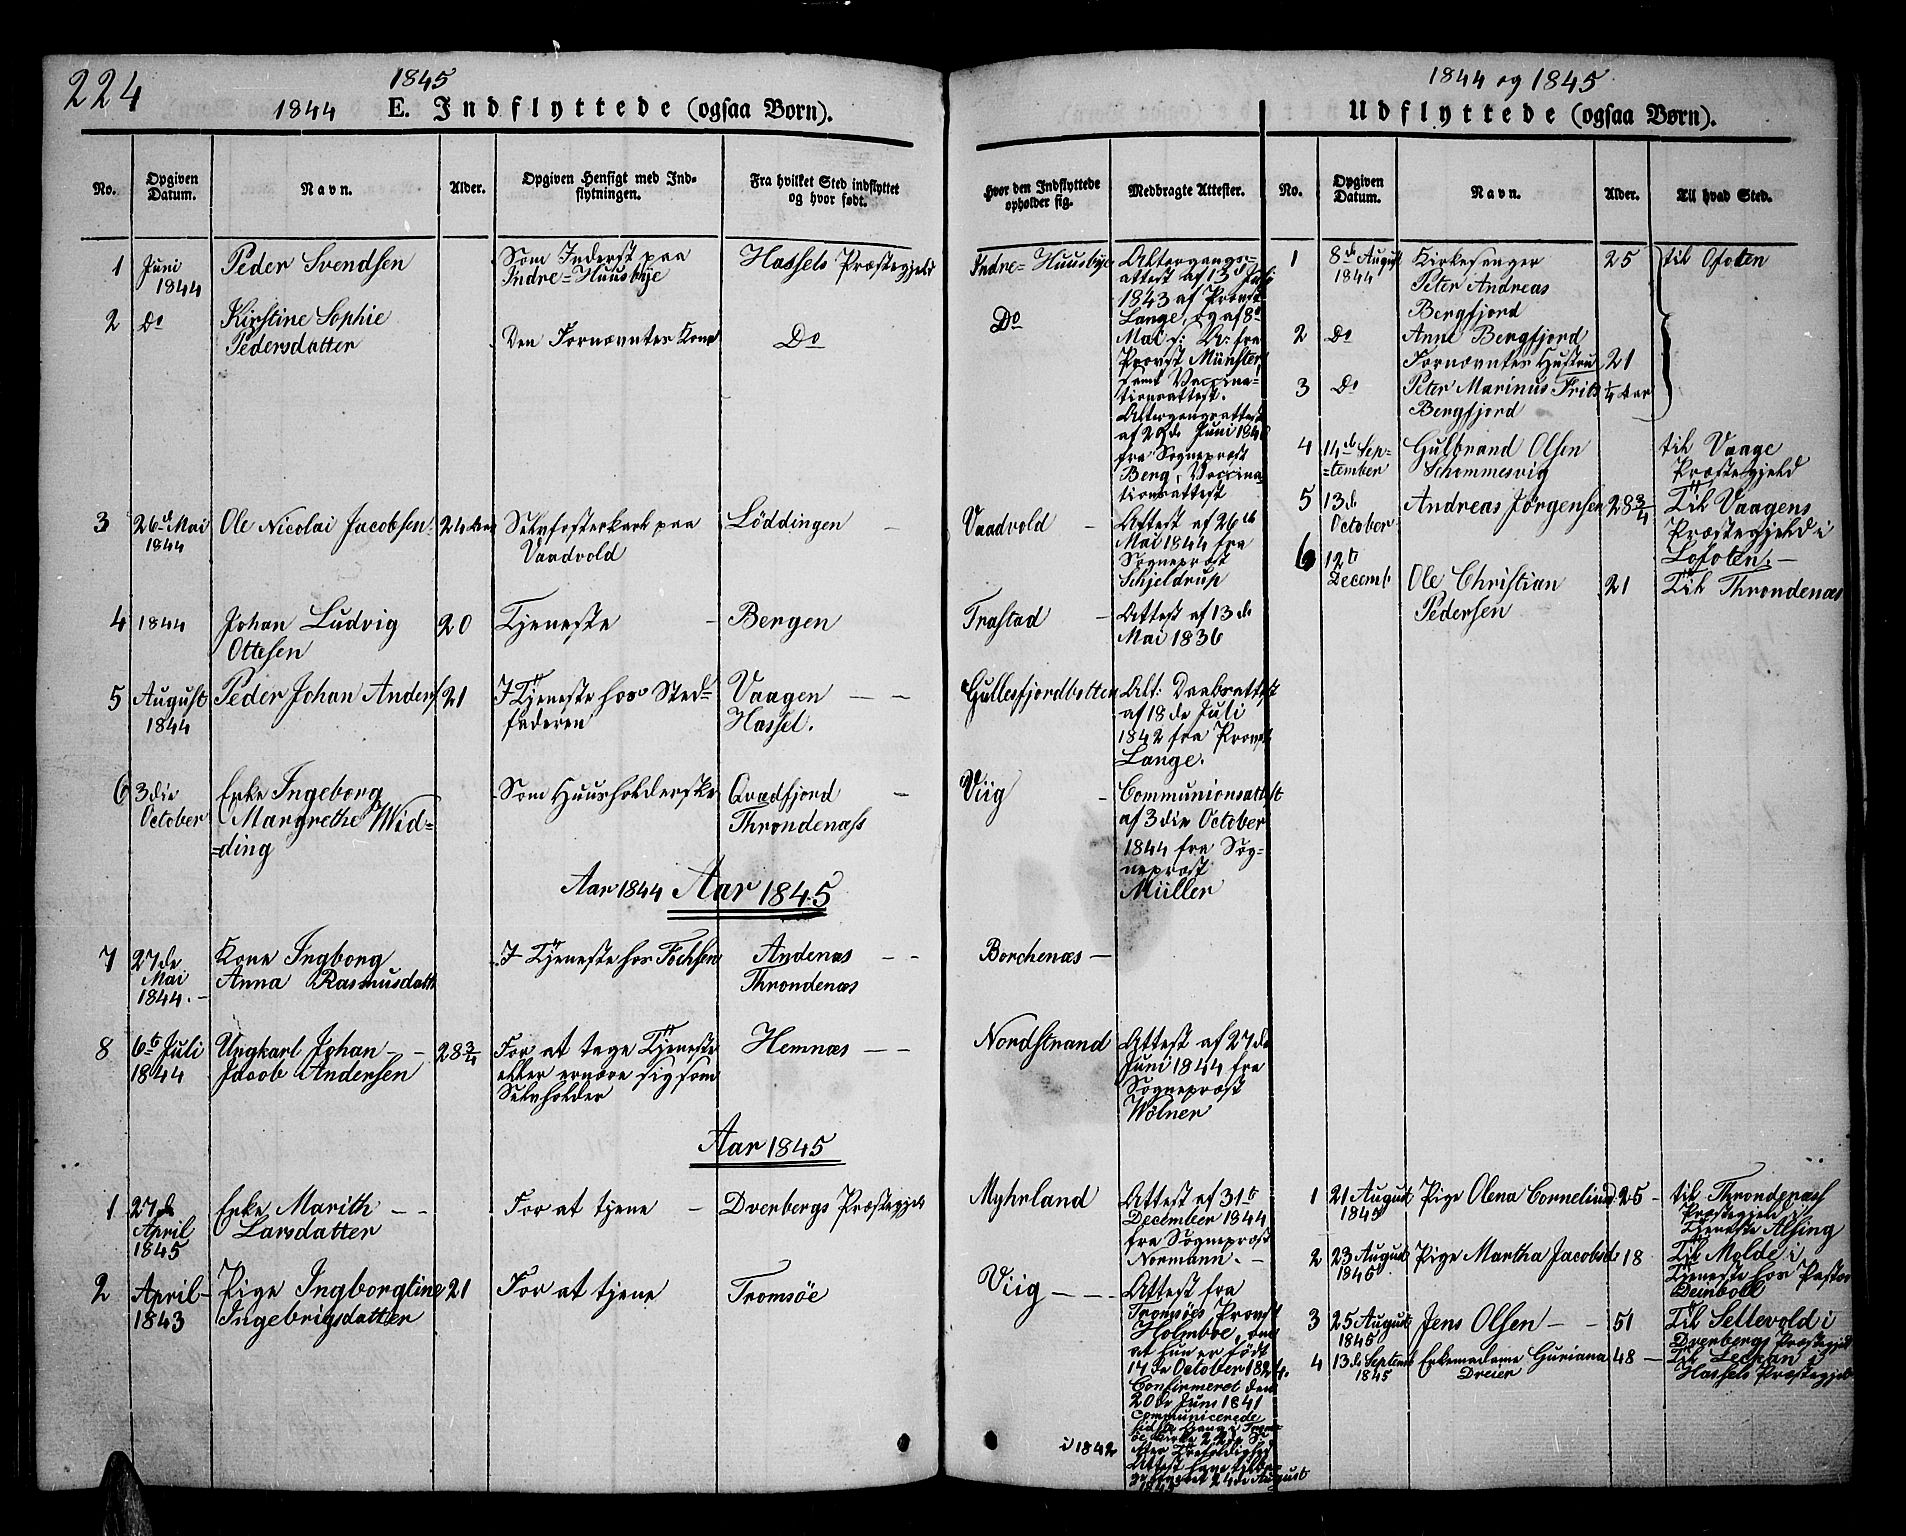 224
1845
1844 E. Indflyttede (ogsaa Børn).
No. Opgiven Datum. Navn. Alder. Opgiven Hensigt med Indflytningen. Fra hvilket Sted indflyttet og hvor født.
1 Juni 1844 Peder Svendsen Som Inderst paa Indre=Huusbye Hassels Præstegjeld
2 Do Kirstine Sophie Pedersdatter Den Fornævntes Kone Do
3 26d Mai 1844 Ole Nicolai Jacobsen 24 Aar Selvfosterkarl paa Vaadvold Löddingen
4 1844 Johan Ludvig Ottesen 20 Tjeneste Bergen
5 August 1844 Peder Johan Anders 21 I Tjeneste hos Stedfaderen Vaagen Hassel.
6 3die October Enke Ingeborg Margrethe Widding Som Huusholderske Qvædfjord Throndenæss
Aar 1844 Aar 1845
7 27de Mai 1844. Kone Ingborg Anna Rasmusdatt I Tjeneste hos Fochsen Andenæs Throndenæs
8 6te Juli 1844 Ungkarl Johan Jacob Andersen 28 3/4 For at tage Tjeneste eller ernære sig som Selvholder Hemnæs
Aar 1845
1 27de April 1845 Enke Marith Larsdatter For at tjene Dverbergs Præstegjeld
2 April 1843 Pige Ingborgtine Ingebrigsdatter 21 For at tjene Tromsöe
Hvor den Indflyttede opholder sig. Medbragte Attester.
Indre=Huusbye Altergangsattest af 13d Juli 1843 af Provst Lange, og af 8d Mai s: A: fra Provst Münster, samt Vaccinationsattest.
Do Altergangsattest af 29de Juni 184 fra Sogneprest Berg, Vaccinationsattest
Vaadvold Attest af 26de Mai 1844 fra Sogneprest Schjeldrup
Trastad Attest af 13de Mai 1836
Gullesfjordbotten Alt: Daabsattest af 18de Juli 1842 fra Provst Lange.
Viig Communionsattest af 3die October 1844 fra Sogneprest Müller
Borchenæs
Nordstrand Attest af 27de Juni 1844 fra Sogneprest Wölner
Myhrland Attest af 31te December 1844 fra Sogneprest Normann.
Viig Attest fra Tromsöes Provst Holmboe, om at hun er födt 17de October 182 Confirmeret den 20de Juni 1841 communicerede i 1842
1844 og 1845
Udflyttede (ogsaa Børn).
No. Opgiven Datum. Navn. Alder. Til hvad Sted.
1 8de August 1844 Kirkesanger Peter Andreas Bergfjord 25 til Ofoten
2 Do Anne Bergfjord Fornævntes Hustru 21
3 Do Peter Marinus Frits Bergfjord 1/4 Aar
4 14de September Gulbrand Olsen Schommesvig til Vaage Præstegjeld
5 13de October Andreas Jørgensen 28 3/4 Til Vaagens Præstegjeld i Lofoten.
6 12te Decemb. Ole Christian Pedersen 21 Til Throndenæs
1 21 August 1845 Pige Olena Cornelius 25 til Throndenæss Præstegjeld i Tjeneste Alsing
2 23 August 1845 Pige Martha Jacobsd 18 Til Molde i Tjeneste hos Pastor Deinboll
3 25 August 1845 Jens Olsen 51 Til Settevold i Dverbergs Præstegjeld
4 13de Septemb 1845 Enkemadame Guriana Dreier 48 Til i Hassels Præstegjeld